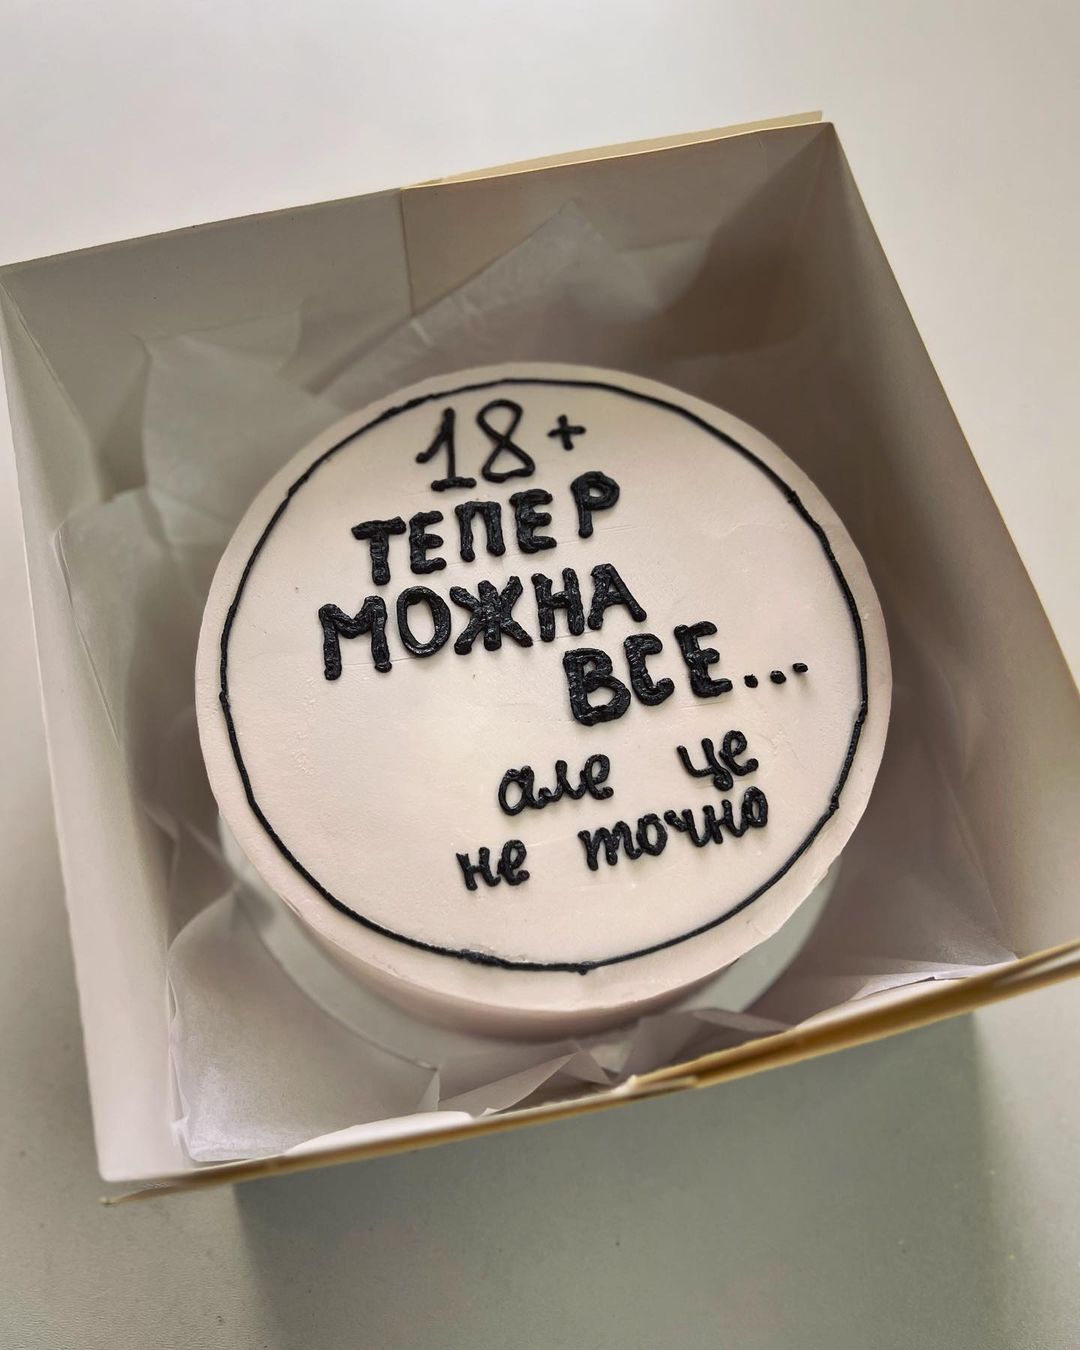 18+
ТЕПЕР
МОЖНА
ВСЕ...
але це
не точно